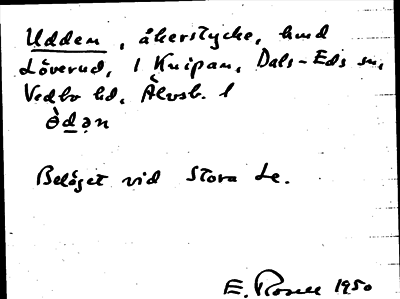 Udden, åkerstycke, hmd
Löverud, 1 Knipan, Dals-Eds sn,
Vedbo hd, Älvsb. l
ə̀dən
Beläget vid Stora Le.
E. Rosell 1950